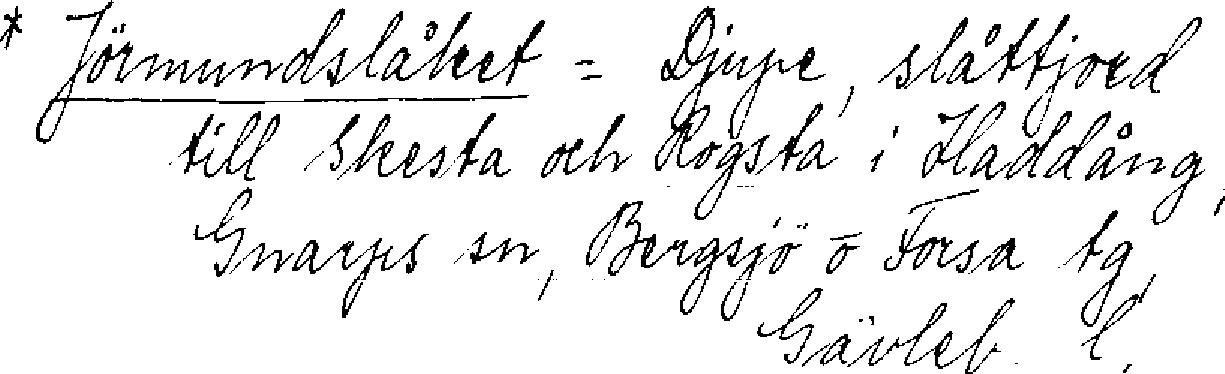 * Jörmundslåket = Djupe, slåttjord
till Skesta och Rogsta i Haddång,
Gnarps sn, Bergsjö o Forsa tg,
Gävleb. l.